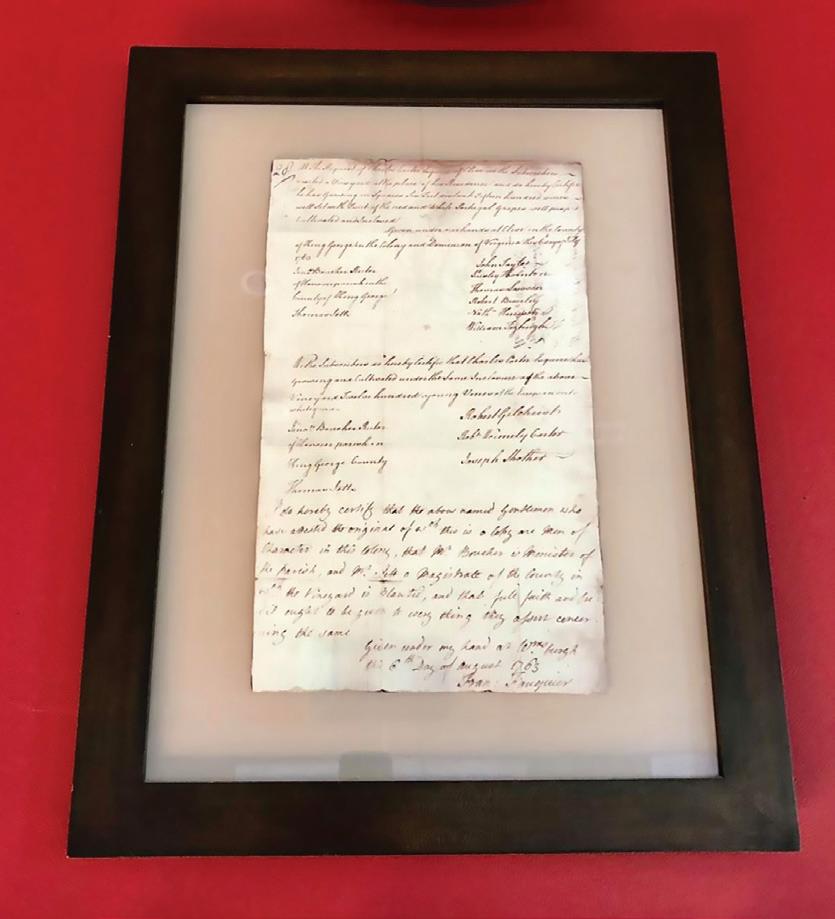 28
At the Request of Charles Carter Esquire of Cleve we the Subscribers
visited a Vineyard at the place of his Residence and do hereby Certifie
he has Growing in Square Feet hundred vines
well set with Fruit of the red and white Portugal Grapes well
Cultivated and Inclosed
Given under our hands at Cleve in the County
of King George in the Colony and Dominion of Virginia this day of
Jonn. Boucher Rector
of Hanover parish in the
County of King George
Thomas Jett
John Taylor
Presley Thornton
Thomas
Robert
Nath.
William
We the Subscribers do hereby Certifie that Charles Carter Esquire has
Growing and Cultivated under the Same Inclosure of the above
Vineyard Twelve hundred young Vines of the
white
Jonn. Boucher Rector
of Hanover parish in
King George County
Thomas Jett
Robert Gilchrist
Robt Wormely Carter
Joseph Strother
I do hereby certify that the above named Gentlemen who
have attested the original of wch this is a Copy are Men of
Character in this Colony, that Mr Boucher is Minister of
the Parish, and Mr Jett a Magistrate of the County in
wch the Vineyard is Planted, and that full faith and Cre
dit ought to be given to every thing they assert concer
ning the same
Given under my hand at Wmsburgh
this 6th Day of August 1763
Fran: Fauquier